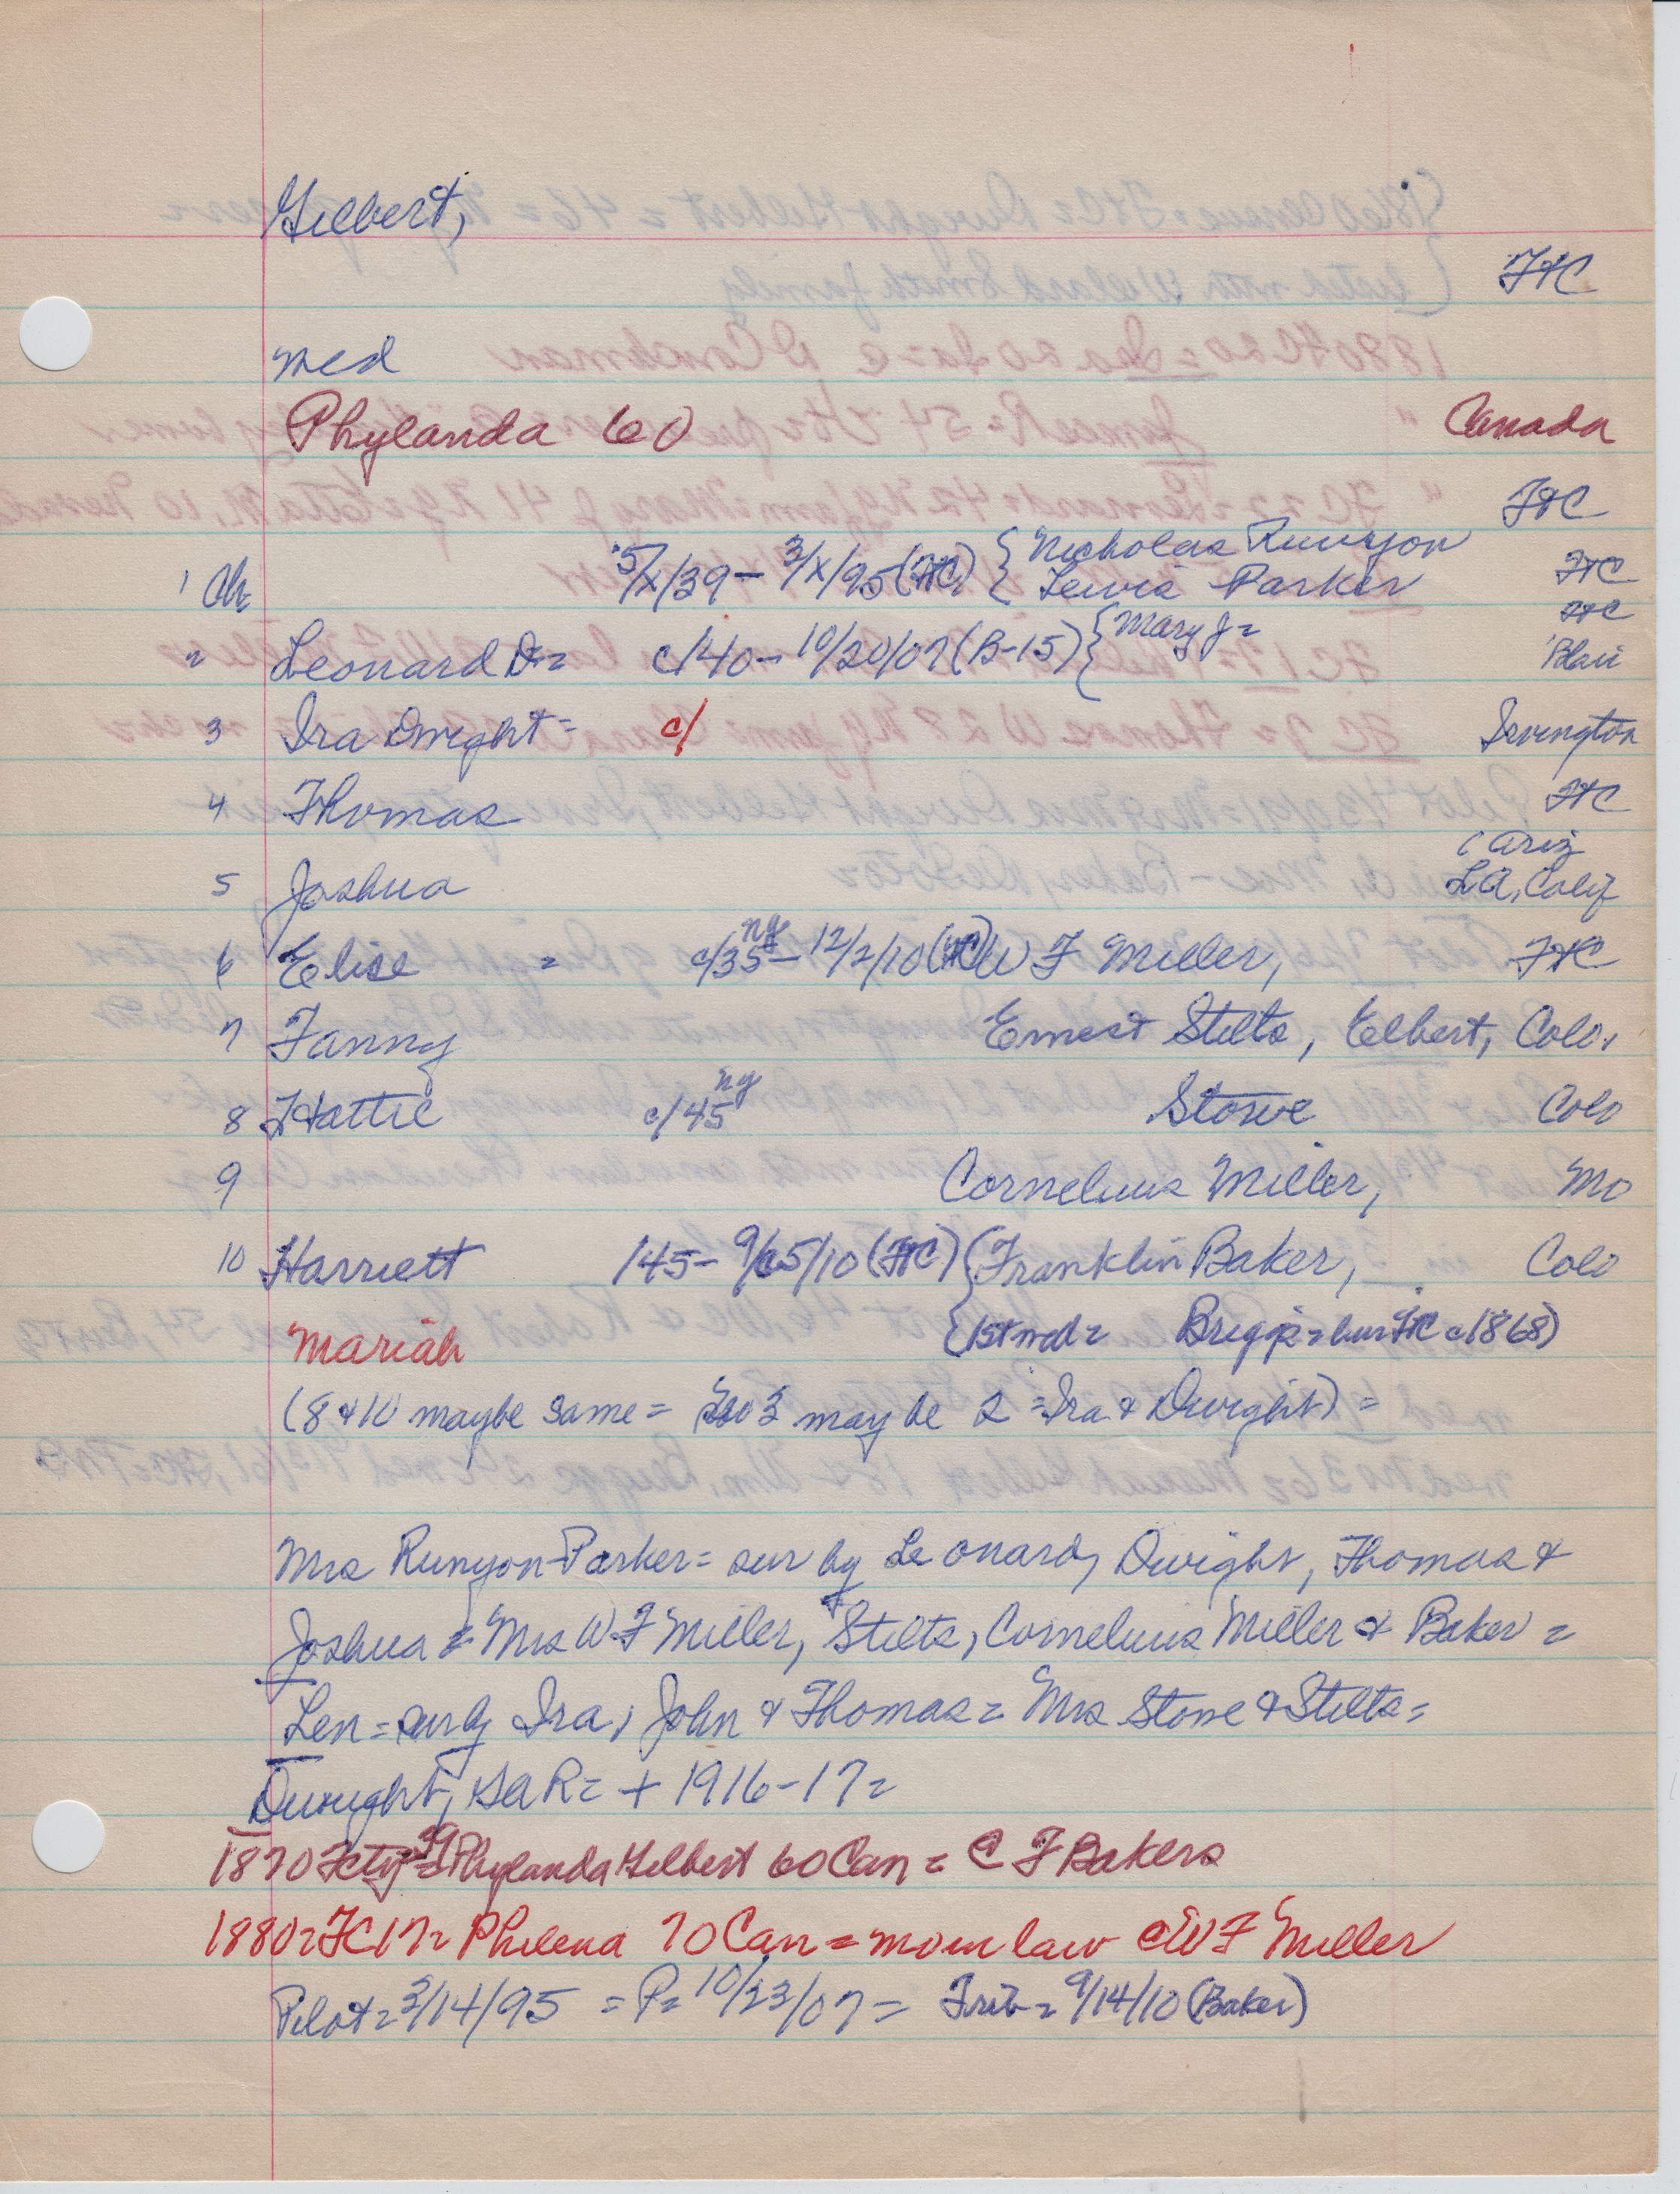 Gilbert,
FtC
med
Phylanda 60 Canada
FtC
1 Ch 5/x/39 - 3/x/95 (FtC) { Nicholas Runyon
{ Lewis Parker FtC
FtC
2 Leonard D = c/40 - 10/20/07 (B-15) { Mary J = Blair
3 Ira Dwight = c/ Irvington
4 Thomas FtC
( Ariz
5 Joshua LA, Calif
6 Elise = c/35 ny - 12/2/10 (FtC) W F Miller, FtC
7 Fanny Ernest Stilts, Elbert, Colo.
8 Hattie c/45 ny Stowe Colo
9 Cornelius Miller, Mo
10 Harriett /45 - 9/ /10 (FtC) { Franklin Baker, Colo
Mariah { 1st med = Briggs = bur FtC c 1868)
(8 & 10 maybe same = 3 may be 2 = Ira & Dwight) =
Mrs Runyon-Parker = sur by Leonard, Dwight, Thomas &
Joshua = Mrs W F Miller, Stilts, Cornelius Miller & Baker =
Len = sur by Ira, John & Thomas = Mrs Stowe & Stilts =
Dwight, GAR = + 1916-17 =
1870 Phylanda Gilbert 60 Can = C F Bakers
1880 = FC 17 = Philena 70 Can = mom law c W F Miller
Pilot = 3/14/95 = P = 10/23/07 = Trib = 9/14/10 (Baker)